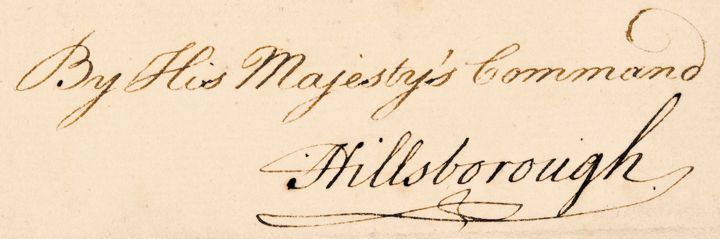 By His Majesty's Command
Hillsborough